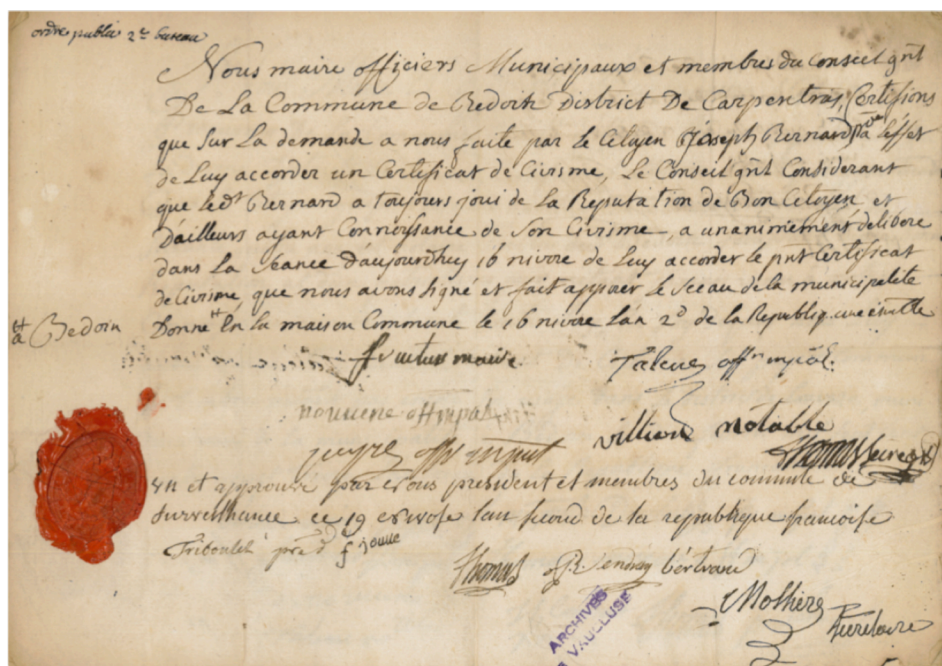 ordre public 2e bureau
Nous maire officiers Municipaux et membres du Conseil gnl
De La Commune de Bedoin District De Carpentras, Certifions
que Sur La demande a nous faite par le Citoyen Joseph Bernard a l'effet
de Luy accorder un Certificat de Civisme, Le Conseil gnl Considerant
que ledt Bernard a toujours joui de La Reputation de Bon Citoyen et
D'ailleurs ayant Connoissance de Son Civisme, a unanimement delibere
dans La Seance d'aujourdhuy 16 nivose de Luy accorder le pnt Certificat
de Civisme, que nous avons signé et fait apposer le Sceau de la municipalité
a Bedoin
Donné En La maison Commune le 16 nivose L'an 2d de la Republiq. une
maire
Off
offi
villiard notable
Thomas
Vu et approuvé par nous president et membres du comitté de
Surveillance ce 19 l'an second de la republique francoise
Thomas
bertrand
Molliere
Secretaire
ARCHIVES
VAUCLUSE